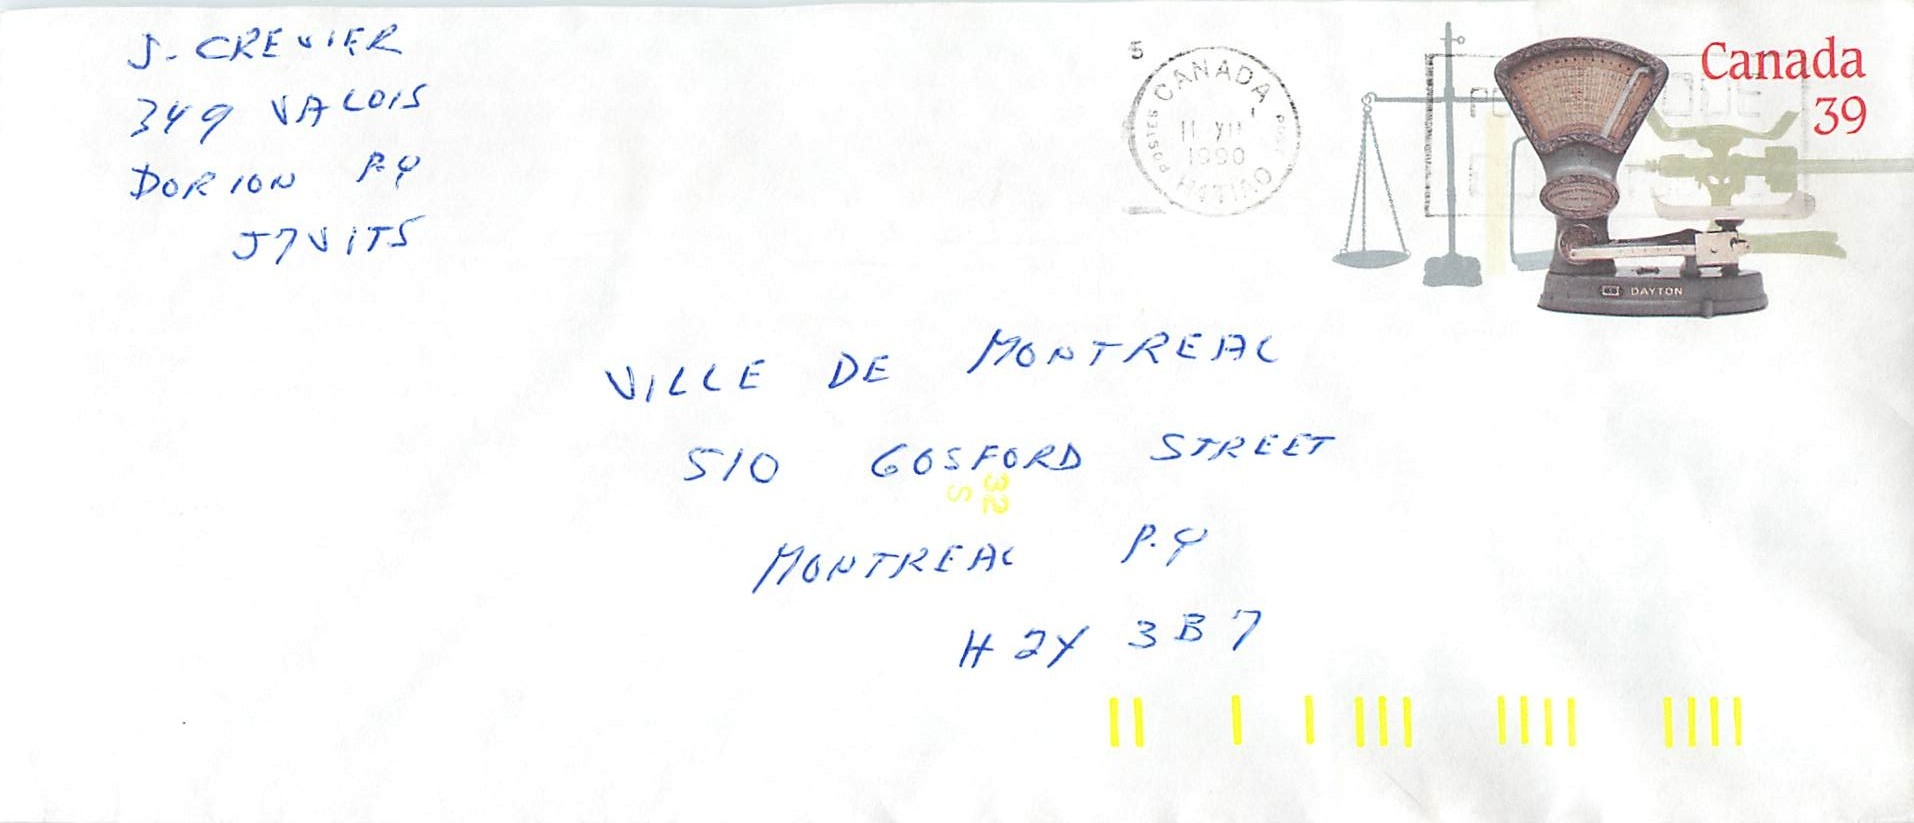 J. CREVIER
349 VALOIS
DORION P.Q
J7V 1T5
5
CANADA
POSTES POST
11 VII
1990
Canada
39
DAYTON
VILLE DE MONTREAL
510 GOSFORD STREET
32
S
MONTREAL P.Q
H2Y 3B7